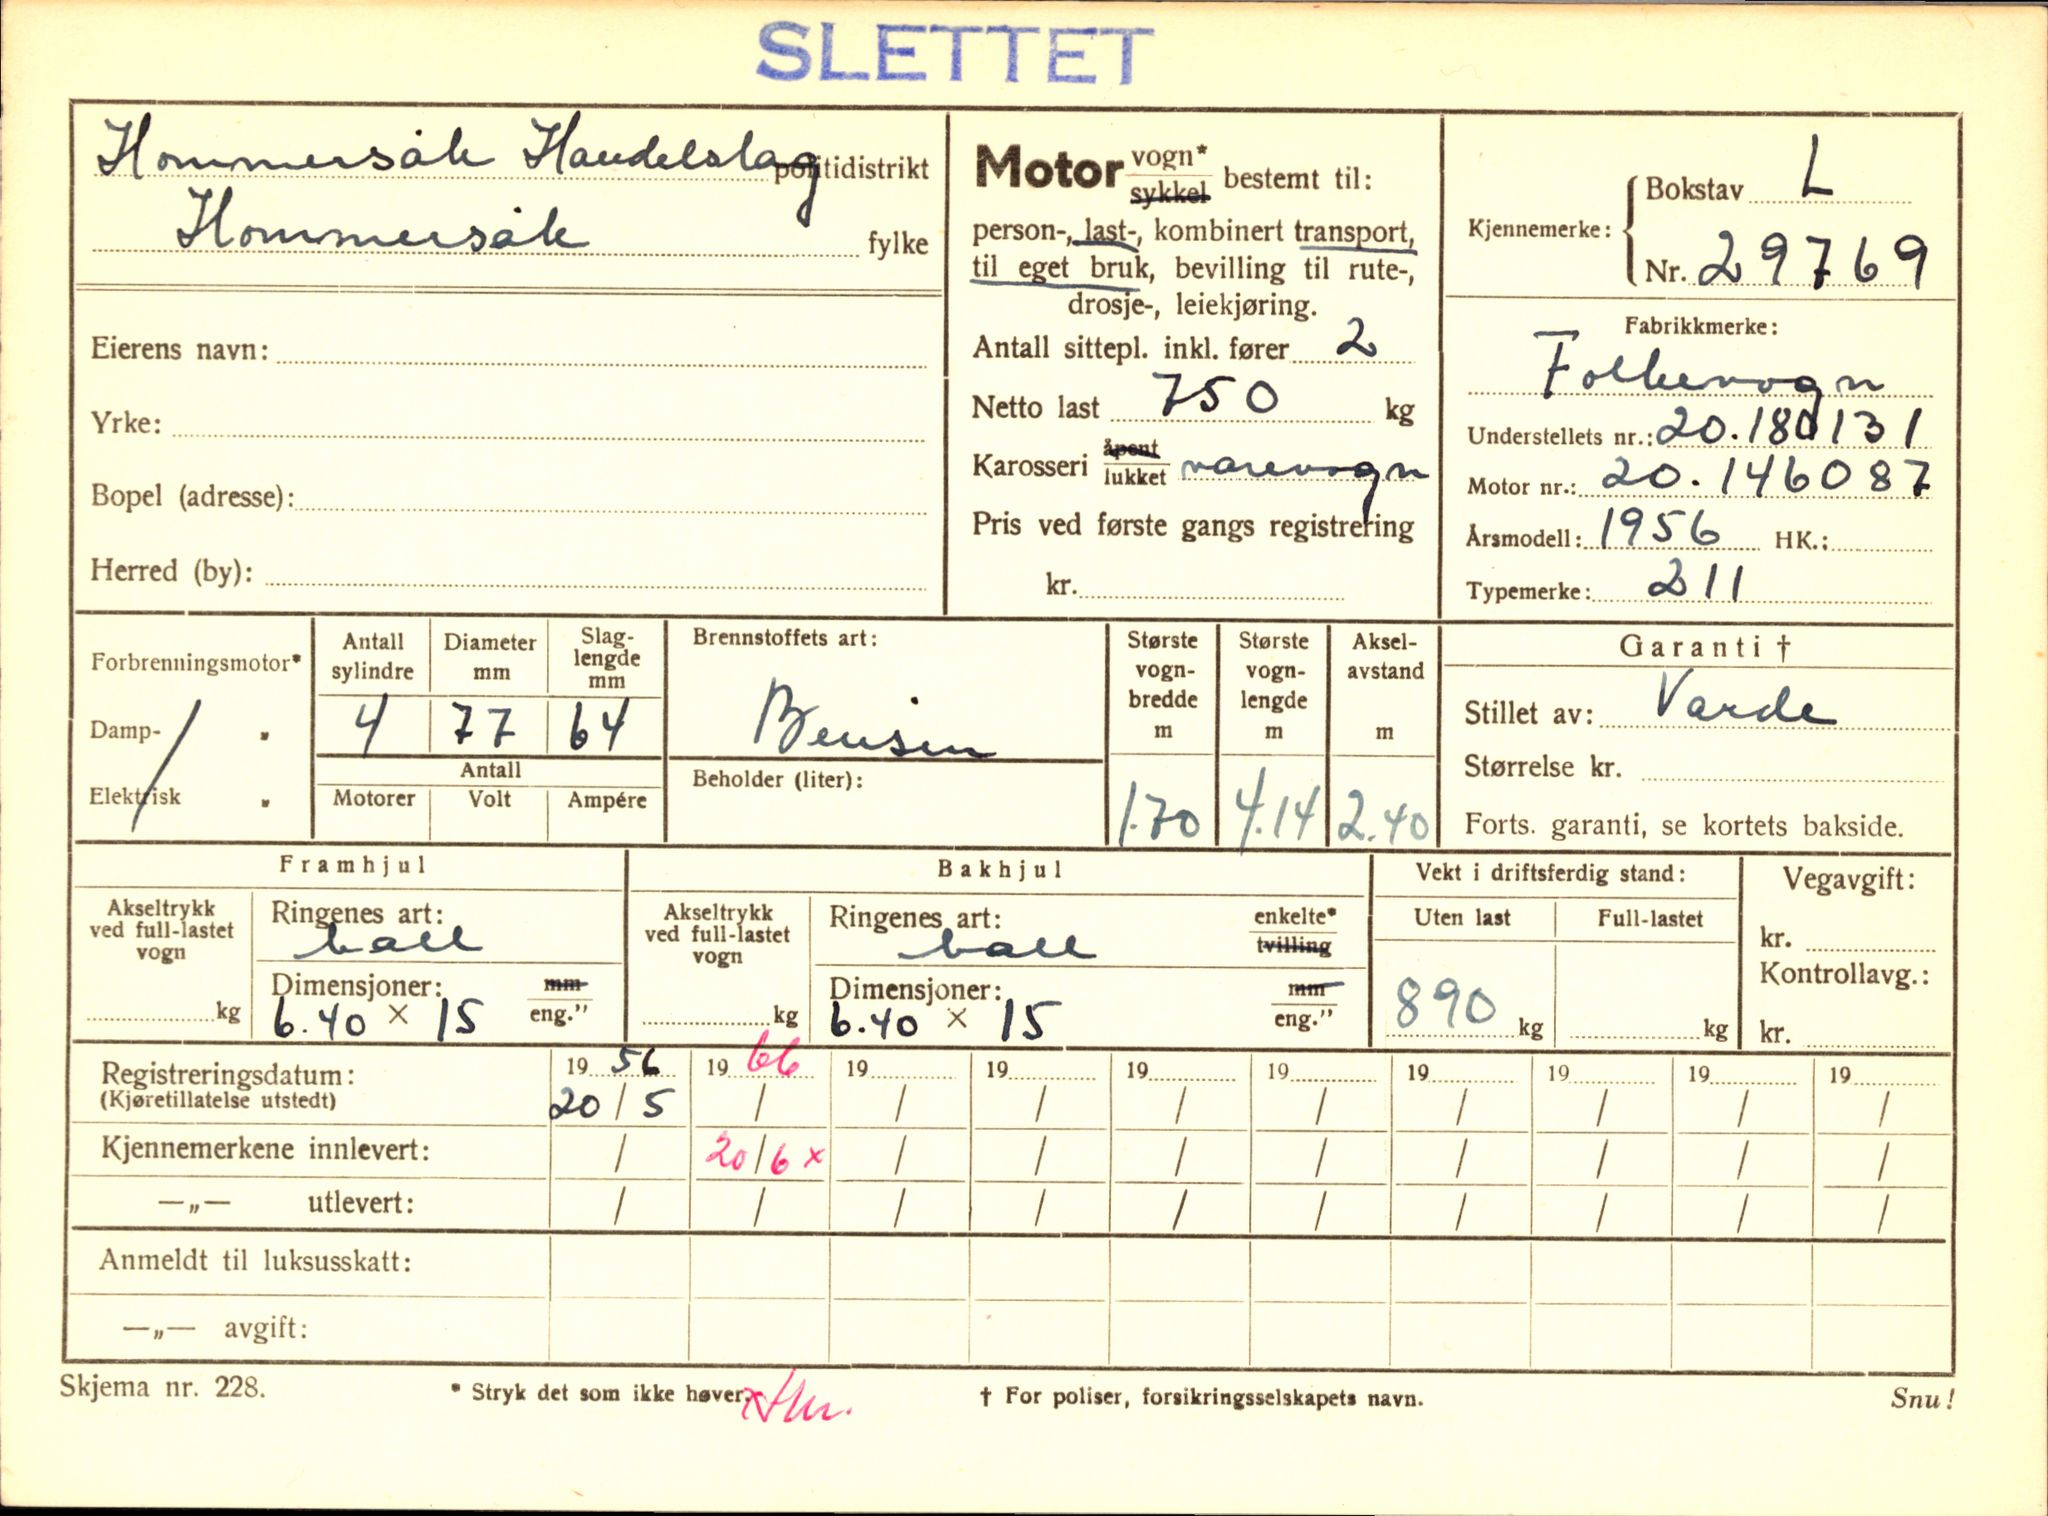 SLETTET
Hommersåk Handelslag politidistrikt
Hommersåk fylke
Eierens navn:
Yrke:
Bopel (adresse):
Herred (by):
Motor vogn* sykkel bestemt til:
person-, last-, kombinert transport,
til eget bruk, bevilling til rute-,
drosje-, leiekjøring.
Antall sittepl. inkl. fører 2
Netto last 750 kg
Karosseri åpent lukket varevogn
Pris ved første gangs registrering
kr.
Kjennemerke: Bokstav L
Nr. 29769
Fabrikkmerke:
Folkevogn
Understellets nr.: 20.180131
Motor nr.: 20.146087
Årsmodell: 1956 HK.:
Typemerke: 211
Forbrenningsmotor*
Damp- "
Elektrisk "
Antall sylindre
Diameter mm
Slag-lengde mm
4 77 64
Antall
Motorer Volt Ampére
Brennstoffets art:
Bensin
Beholder (liter):
Største vogn-bredde m
1.70
Største vogn-lengde m
4.14
Aksel-avstand m
2.40
Garanti †
Stillet av: Varde
Størrelse kr.
Forts. garanti, se kortets bakside.
Framhjul
Akseltrykk ved full-lastet vogn
kg
Ringenes art:
ball
Dimensjoner: mm eng."
6.40 × 15
Bakhjul
Akseltrykk ved full-lastet vogn
kg
Ringenes art: enkelte* tvilling
ball
Dimensjoner: mm eng."
6.40 × 15
Vekt i driftsferdig stand:
Uten last Full-lastet
890 kg kg
Vegavgift:
kr.
Kontrollavg.:
kr.
Registreringsdatum: 19 56 19 66 19 19 19 19 19 19 19 19
(Kjøretillatelse utstedt) 20/5 / / / / / / / / /
Kjennemerkene innlevert: / 20/6 x / / / / / / / /
—„— utlevert: / / / / / / / / / /
Anmeldt til luksusskatt:
—„— avgift:
Skjema nr. 228. * Stryk det som ikke høver. † For poliser, forsikringsselskapets navn. Snu!